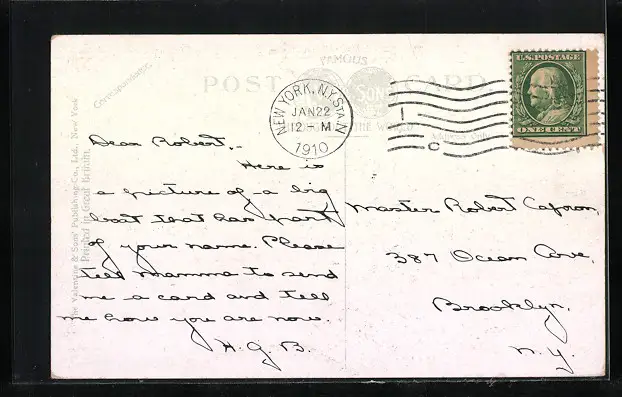 FAMOUS
POST CARD
SONS
THE WORLD
Correspondence.
Address Only
The Valentine & Sons' Publishing Co., Ltd., New York
Printed in Great Britain.
NEW YORK, N.Y. STA. N
JAN 22
12 - M
1910
1
C
U.S. POSTAGE
ONE CENT
Dear Robert,-
Here is
a picture of a big
boat that has part
of your name. Please
tell mamma to send
me a card and tell
me how you are now.
H. G. B.
Master Robert
387 Ocean Ave,
Brooklyn,
N. Y.